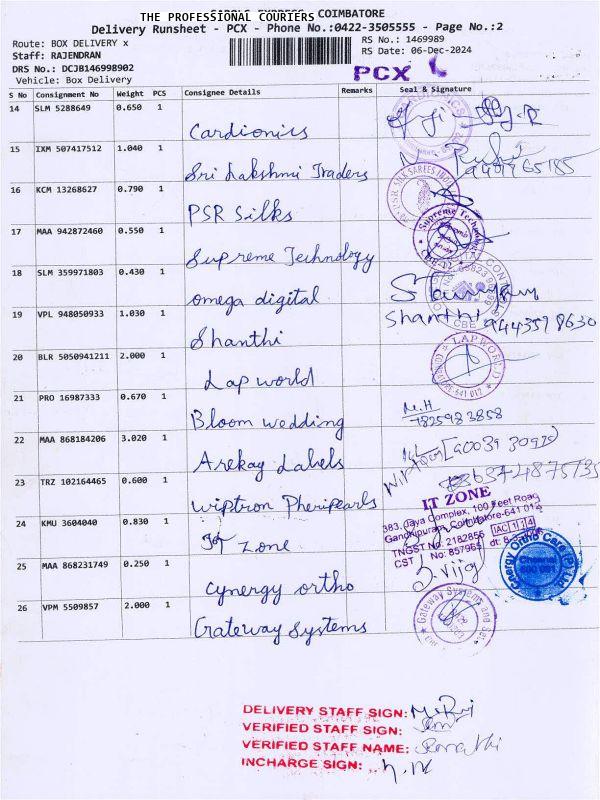 THE PROFESSIONAL COURIERS
COIMBATORE
Delivery Runsheet - PCX - Phone No.:0422-3505555 - Page No.:2
Route: BOX DELIVERY x
RS No.: 1469989
Staff: RAJENDRAN
RS Date: 06-Dec-2024
DRS No.: DCJB146998902
Vehicle: Box Delivery
PCX
S No Consignment No Weight PCS Consignee Details Remarks Seal & Signature
14 SLM 5288649 0.650 1
Cardionics
15 IXM 507417512 1.040 1
Sri Lakshmi Traders
16 KCM 13268627 0.790 1
PSR Silks
PSR SILK SAREES
17 MAA 942872460 0.550 1
Supreme Technology
Supreme
18 SLM 359971803 0.430 1
omega digital
19 VPL 948050933 1.030 1
Shanthi
Shanthi
CBE
20 BLR 5050941211 2.000 1
Lap world
LAPWORLD
641 012
21 PRO 16987333 0.670 1
Bloom wedding
M.H
22 MAA 868184206 3.020 1
Arekay Labels
23 TRZ 102164465 0.600 1
wiptron Pheripearls
24 KMU 3604040 0.830 1
IT Zone
IT ZONE
383, Jaya Complex, 100 Feet Road,
Gandhipuram, Coimbatore-641 012
TNGST No: 2182856
CST No: 857965
25 MAA 868231749 0.250 1
cynergy ortho
26 VPM 5509857 2.000 1
Gateway Systems
Gateway Systems and
DELIVERY STAFF SIGN:
VERIFIED STAFF SIGN:
VERIFIED STAFF NAME:
INCHARGE SIGN: